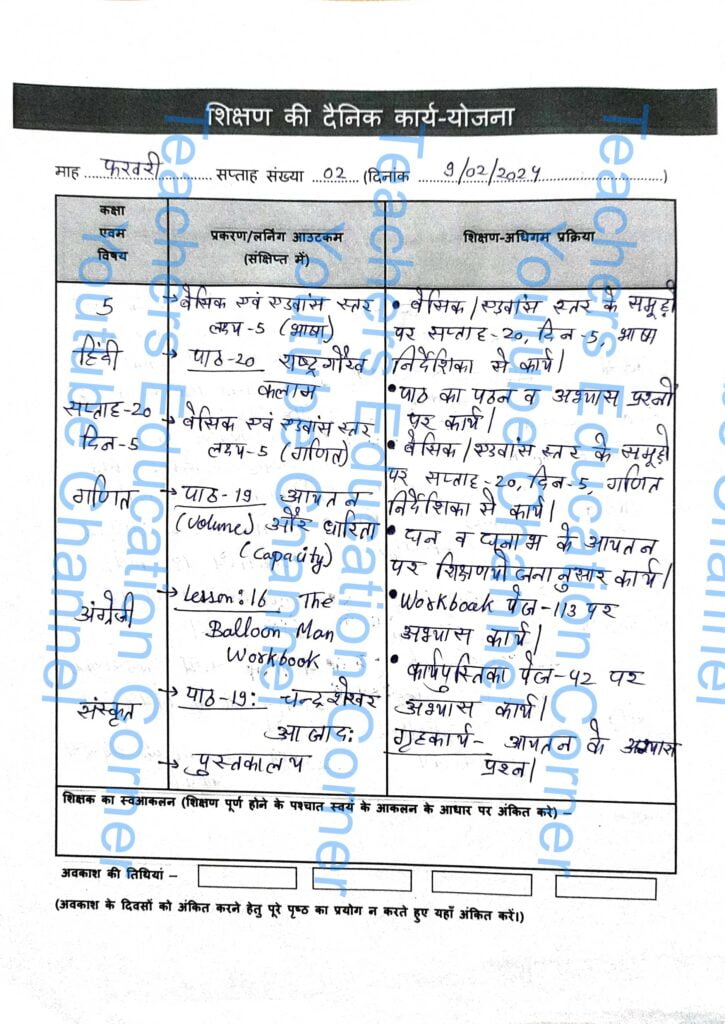 शिक्षण की दैनिक कार्य-योजना
माह फरवरी सप्ताह संख्या 02 (दिनांक 9/02/2024)
कक्षा
एवम
विषय
प्रकरण/लर्निंग आउटकम
(संक्षिप्त में)
शिक्षण-अधिगम प्रक्रिया
5
हिंदी
सप्ताह-20
दिन-5
गणित
अंग्रेजी
संस्कृत
→ बेसिक एवं एडवांस स्तर
लक्ष्य-5 (भाषा)
→ पाठ-20 राष्ट्रगौरव
कलाम
→ बेसिक एवं एडवांस स्तर
लक्ष्य-5 (गणित)
→ पाठ-19 आयतन
(Volume) और धारिता
(Capacity)
→ Lesson:16 The
Balloon Man
Workbook
→ पाठ-19: चन्द्रशेखर
आजाद:
→ पुस्तकालय
• बेसिक/एडवांस स्तर के समूहों
पर सप्ताह-20, दिन-5, भाषा
निर्देशिका से कार्य।
• पाठ का पठन व अभ्यास प्रश्नों
पर कार्य।
• बेसिक/एडवांस स्तर के समूहों
पर सप्ताह-20, दिन-5, गणित
निर्देशिका से कार्य।
• घन व घनाभ के आयतन
पर शिक्षणयोजनानुसार कार्य।
• Workbook पेज-113 पर
अभ्यास कार्य।
• कार्यपुस्तिका पेज-42 पर
अभ्यास कार्य।
गृहकार्य- आयतन के अभ्यास
प्रश्न।
शिक्षक का स्वआकलन (शिक्षण पूर्ण होने के पश्चात स्वयं के आकलन के आधार पर अंकित करे) –
अवकाश की तिथियां –
(अवकाश के दिवसों को अंकित करने हेतु पूरे पृष्ठ का प्रयोग न करते हुए यहाँ अंकित करें।)
Teachers Education Corner
Youtube Channel
Teachers Education Corner
Youtube Channel
Teachers Education Corner
Youtube Channel